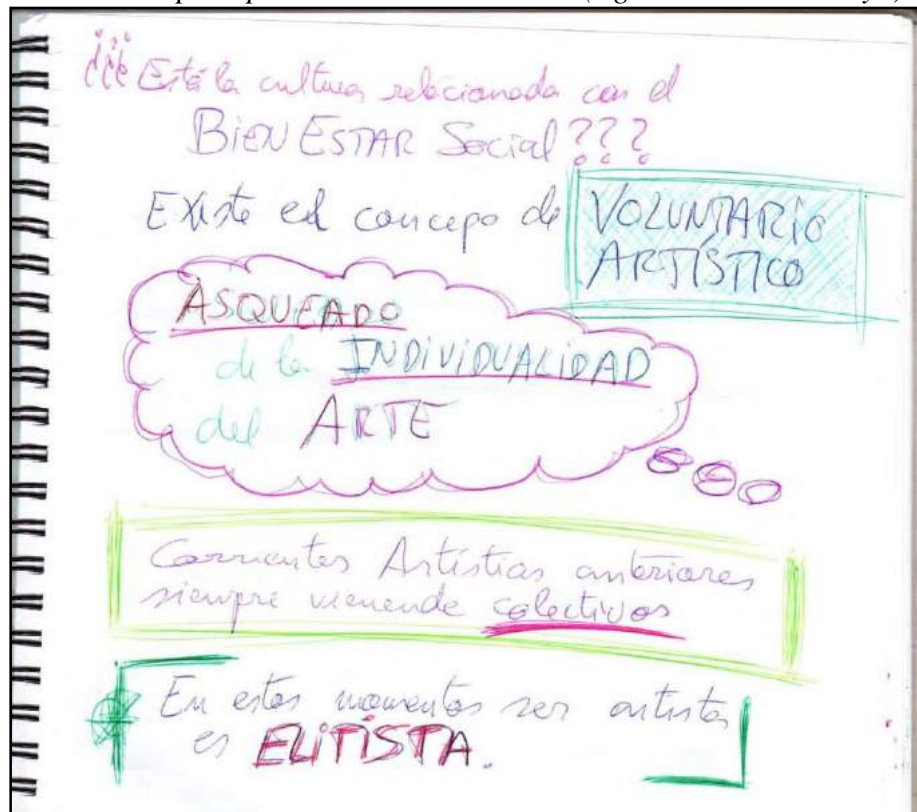 ¿¿¿Está la cultura relacionada con el
BIEN ESTAR Social???
Existe eel concepo de VOLUNTARIO
ARTÍSTICO
ASQUEADO
de la INDIVIDUALIDAD
del ARTE
Corrientes Artístias anteriores
siempre vienende colectivos
En estos momentos ser artista
es ELITÍSTA.